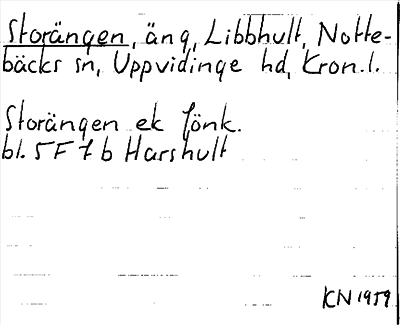 Storängen, äng, Libbhult, Notte-
bäcks sn, Uppvidinge hd, Kron.l.
Storängen ek fönk.
bl. 5F7b Harshult
KN 1959